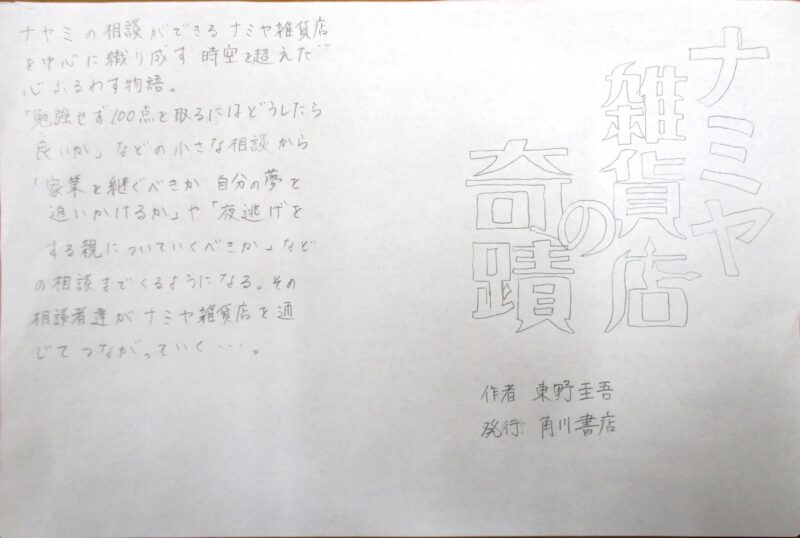 ナヤミの相談ができるナミヤ雑貨店
を中心に織り成す 時空を超えた
心ふるわす物語。
「勉強せず100点を取るにはどうしたら
良いか」などの小さな相談から
「家業を継ぐべきか 自分の夢を
追いかけるか」や「夜逃げを
する親についていくべきか」など
の相談までくるようになる。その
相談者達がナミヤ雑貨店を通
じてつながっていく…。
ナミヤ
雑貨店
の
奇蹟
作者 東野圭吾
発行 角川書店